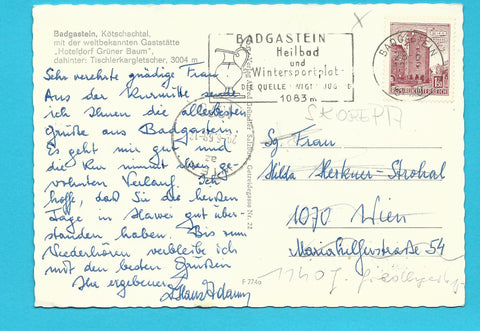 Badgastein, Kötschachtal,
mit der weltbekannten Gaststätte
"Hoteldorf Grüner Baum",
dahinter: Tischlerkargletscher, 3004 m
Sehr verehrte gnädige Frau
Aus der Kurmitte sende
ich Ihnen die allerbesten
Grüße aus Badgastein.
Es geht mir gut und
die Kur nimmt ihren ge-
wohnten Verlauf. Ich
hoffe, daß Sie die heißen
Tage in Hawei gut über-
standen haben. Bis zum
Wiederhören verbleibe ich
mit den besten Grüßen
Ihr ergebener
Hans Adam
BADGASTEIN
Heilbad
und
Wintersportplatz
DIE QUELLE EWIGER JUGEND
1083 m
BADGASTEIN
REPUBLIK ÖSTERREICH
Sg. Frau
Hilda Herkner-Strohal
1070 Wien
Mariahilferstraße 54
1140
F 774a